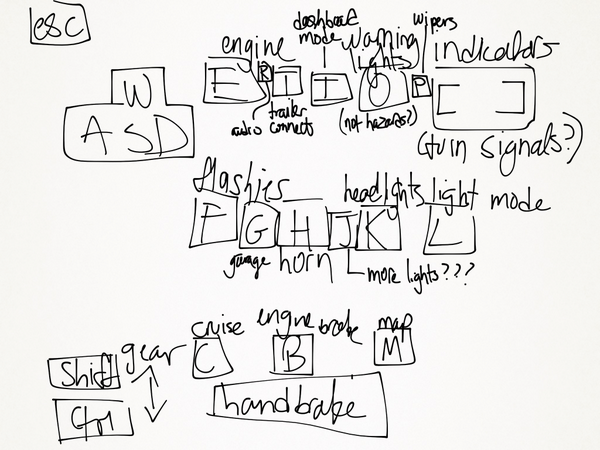 esc
engine
dashboard mode
warning lights
wipers
indicators
W
E R T I O P [ ]
A S D
audio
trailer connects
(not hazards?)
(turn signals?)
flashies
headlights
light mode
F G H J K L
garage
horn
more lights???
cruise
engine brake
map
Shift
gear
C B M
Ctrl
handbrake